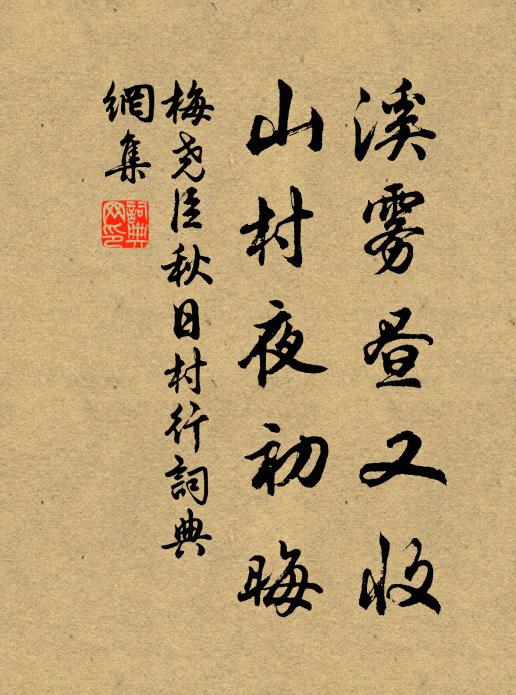 溪雾昼又收
山村夜初晦
梅尧臣秋日村行詞典
網集
詞典
网印